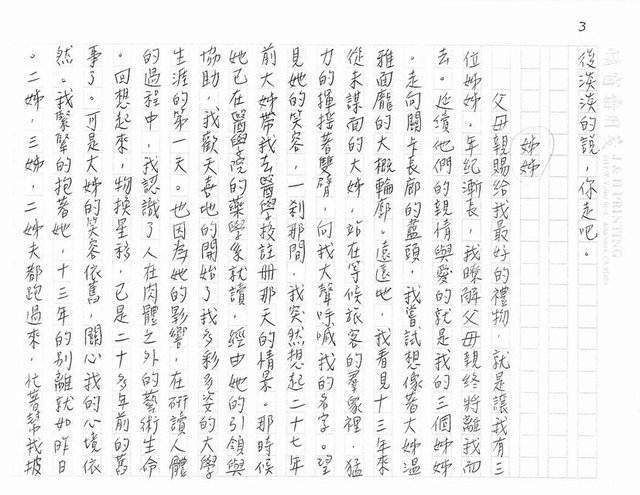 3
後淡淡的說，你走吧。
姊姊
父母親賜給我最好的禮物，就是讓我有三
位姊姊，年紀漸長，我瞭解父母親終將離我而
去。延續他們的親情與愛的就是我的三個姊姊
。走向關卡長廊的盡頭，我嘗試想像著大姊溫
雅面龐的大概輪廓。遠遠地，我看見十三年來
從未謀面的大姊，站在等候旅客的羣衆裡，猛
力的揮搖著雙臂，向我大聲呼喊我的名字。望
見她的笑容，一剎那間，我突然想起二十七年
前大姊帶我去醫學校註冊那天的情景。那時候
她已在醫學院的藥學系就讀，經由她的引領與
協助，我歡天喜地的開始了我多彩多姿的大學
生涯的第一天。也因為她的影響，在研讀人體
的過程中，我認識了人在肉體之外的藝術生命
。回想起來，物換星移，已是二十多年前的舊
事了。可是大姊的笑容依舊，關心我的心境依
然。我緊緊的抱著她，十三年的別離就如昨日
。二姊，三姊，二姊夫都跑過來，忙著幫我披
J & H PRINTING